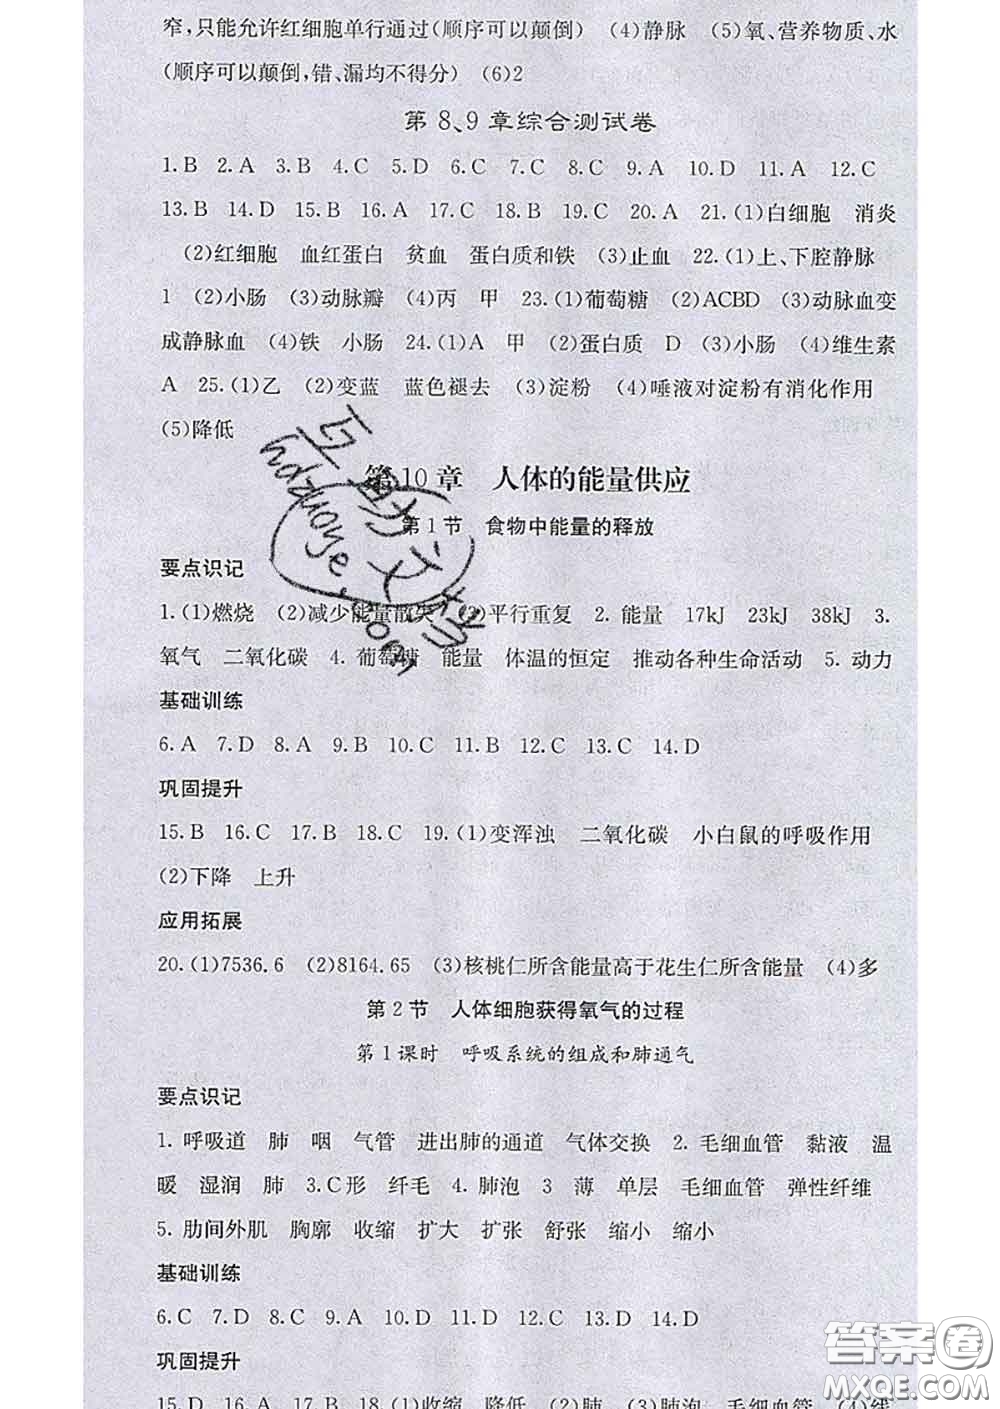 窄,只能允许红细胞单行通过(顺序可以颠倒) (4)静脉 (5)氧、营养物质、水
(顺序可以颠倒,错、漏均不得分) (6)2
第8、9章综合测试卷
1.B 2.A 3.B 4.C 5.D 6.C 7.C 8.C 9.A 10.D 11.A 12.C
13.B 14.D 15.B 16.A 17.C 18.B 19.C 20.A 21.(1)白细胞 消炎
(2)红细胞 血红蛋白 贫血 蛋白质和铁 (3)止血 22.(1)上、下腔静脉
1 (2)小肠 (3)动脉瓣 (4)丙 甲 23.(1)葡萄糖 (2)ACBD (3)动脉血变
成静脉血 (4)铁 小肠 24.(1)A 甲 (2)蛋白质 D (3)小肠 (4)维生素
A 25.(1)乙 (2)变蓝 蓝色褪去 (3)淀粉 (4)唾液对淀粉有消化作用
(5)降低
第10章 人体的能量供应
第1节 食物中能量的释放
要点识记
1.(1)燃烧 (2)减少能量散失 (3)平行重复 2. 能量 17kJ 23kJ 38kJ 3.
氧气 二氧化碳 4. 葡萄糖 能量 体温的恒定 推动各种生命活动 5. 动力
基础训练
6.A 7.D 8.A 9.B 10.C 11.B 12.C 13.C 14.D
巩固提升
15.B 16.C 17.B 18.C 19.(1)变浑浊 二氧化碳 小白鼠的呼吸作用
(2)下降 上升
应用拓展
20.(1)7536.6 (2)8164.65 (3)核桃仁所含能量高于花生仁所含能量 (4)多
第2节 人体细胞获得氧气的过程
第1课时 呼吸系统的组成和肺通气
要点识记
1. 呼吸道 肺 咽 气管 进出肺的通道 气体交换 2. 毛细血管 黏液 温
暖 湿润 肺 3.C形 纤毛 4. 肺泡 3 薄 单层 毛细血管 弹性纤维
5. 肋间外肌 胸廓 收缩 扩大 扩张 舒张 缩小 缩小
基础训练
6.C 7.D 8.C 9.A 10.D 11.D 12.C 13.D 14.D
巩固提升
15.D 16.A 17.B 18.(1)收缩 降低 (2)肺 (3)肺泡 毛细血管 (4)线
答案圈
MXQE.COM